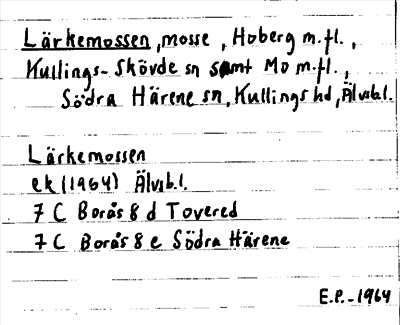 Lärkemossen, mosse, Hoberg m.fl.,
Kullings-Skövde sn samt Mo m.fl.,
Södra Härene sn, Kullings hd, Älvsb.l.
Lärkemossen
ek (1964) Älvsb.l.
7 C Borås 8 d Tovered
7 C Borås 8 e Södra Härene
E.P. - 1964